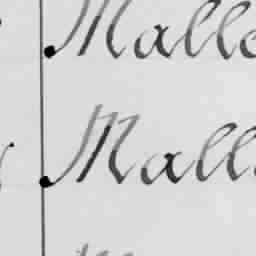 Malle
Mall